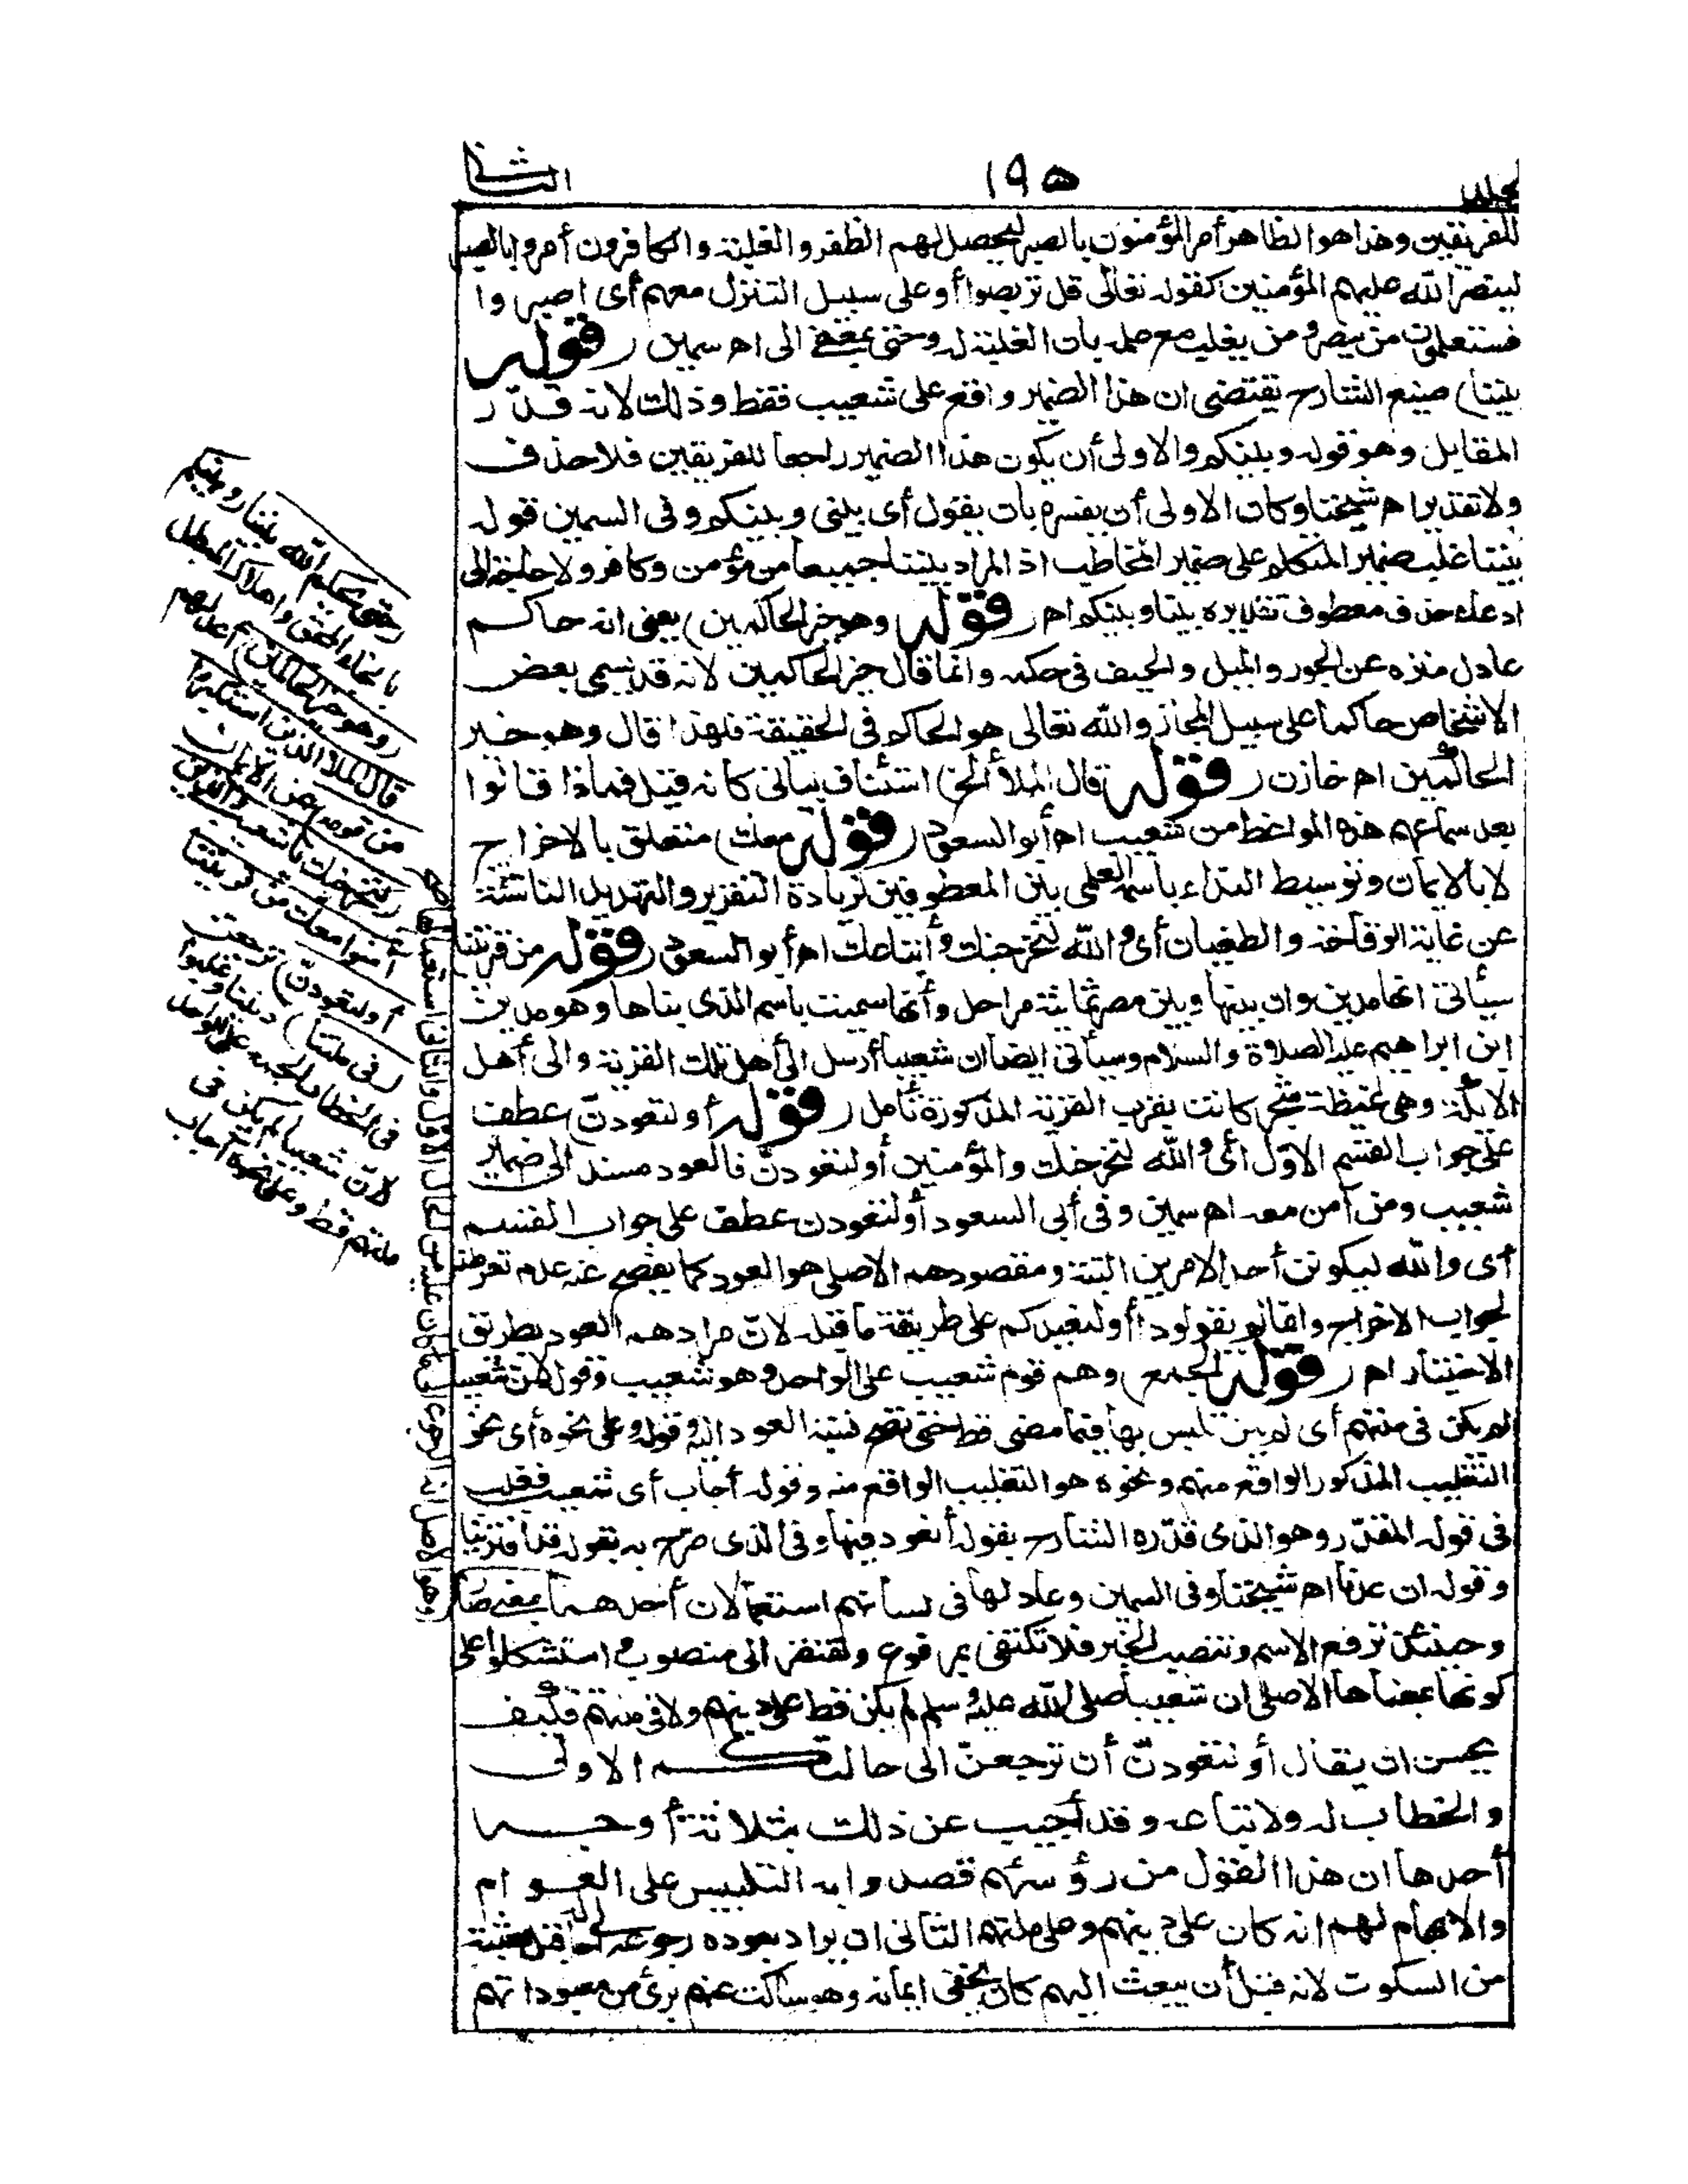 جلد ١٩٥ الثاني
للفريقين وهذا هو الظاهر أمر المؤمنون بالصبر ليحصل لهم الظفر والغلبة والكافرون أمروا بالصبر
لينصر الله عليهم المؤمنين كقوله تعالى قل تربصوا أو على سبيل التنزل معهم أى اصبروا
فستعلمون من ينتصر ومن يغلب مع علمه بان الغلبة له وحتى بمعنى الى اه سمين (قوله
بيننا) صنيع الشارح يقتضى ان هذا الضمير واقع على شعيب فقط وذلك لانه قدّر
المقابل وهو قوله وبينكم والاولى أن يكون هذا الضمير راجعا للفريقين فلا حذف
ولا تقدير اه شيخنا وكان الاولى أن يفسره بان يقول أى بينى وبينكم وفى السمين قوله
بيننا غلب ضمير المتكلم على ضمير المخاطب اذ المراد بيننا جميعا من مؤمن وكافر ولا حاجة الى
ادعاء حذف معطوف تقديره بيننا وبينكم اه (قوله وهو خير الحاكمين) يعنى انه حاكم
عادل منزه عن الجور والميل والحيف فى حكمه وانما قال خير الحاكمين لانه قد يسمى بعض
الاشخاص حاكما على سبيل المجاز والله تعالى هو الحاكم فى الحقيقة فلهذا قال وهو خير
الحاكمين اه خازن (قوله قال الملأ الخ) استئناف بيانى كانه قيل فماذا قالوا
بعد سماعهم هذه المواعظ من شعيب اه أبو السعود (قوله معك) متعلق بالاخراج
لا بالايمان وتوسيط النداء باسمه العلمى بين المعطوفين لزيادة التقرير والتهديد الناشئة
عن غاية الوقاحة والطغيان أى والله لنخرجنك وأتباعك اه أبو السعود (قوله من قريتنا)
سيأتى انها مدين وان بينها وبين مصر ثمانية مراحل وأنها سميت باسم الذى بناها وهو مدين
ابن ابراهيم عليه الصلاة والسلام وسيأتى ايضا ان شعيبا أرسل الى أهل تلك القرية والى أهل
الايكة وهى غيظة شجر كانت بقرب القرية المذكورة تأمل (قوله أو لتعودنّ) عطف
على جواب القسم الاول أى والله لنخرجنك والمؤمنين أو لتعودنّ فالعود مسند الى ضمير
شعيب ومن آمن معه اه سمين وفى أبى السعود أو لتعودن عطف على جواب القسم
أى والله ليكونن أحد الامرين البتة ومقصودهم الاصلى هو العود كما يفصح عنه عدم تعرضه
لجواب الاخراج وانما لم يقولوا أو لنعيدنكم على طريقة ما قبله لانّ مرادهم العود بطريق
الاختيار اه (قوله الجمع) وهم قوم شعيب على الواحد وهو شعيب وقوله لانّ شعيبا
لم يكن فى ملتهم أى لم يتلبس بها فيما مضى قط حتى تصح نسبة العود اليه وقوله وعلى نحوه أى نحو
التغليب المذكور الواقع منهم ونحوه هو التغليب الواقع منه وقوله أجاب أى شعيب فغلب
فى قوله المقدّر وهو الذى قدّره الشارح بقوله أنعود فيها وفى الذى صرح به بقوله قد افترينا
وقوله ان عدنا اه شيخنا وفى السمين وعاد لها فى لسانهم استعمالان أحدهما بمعنى صار
وحينئذ ترفع الاسم وتنصب الخبر فلا تكتفى بمرفوع وتفتقر الى منصوب واستشكلوا على
كونها بمعناها الاصلى ان شعيبا صلى الله عليه وسلم لم يكن قط على دينهم ولا فى ملتهم فكيف
يحسن ان يقال أو لتعودنّ أى ترجعنّ الى حالتكم الاولى
والخطاب له ولاتباعه وقد أجيب عن ذلك بثلاثة أوجه
أحدها ان هذا القول من رؤسائهم قصدوا به التلبيس على العوام
والايهام لهم انه كان على دينهم وعلى ملتهم الثانى ان يراد بعوده رجوعه الى حاله قبل بعثته
من السكوت لانه قبل أن يبعث اليهم كان يخفى ايمانه وهو ساكت عنهم برئ من معبوداتهم
(حتى يحكم الله بيننا) وبينكم
بانجاء المحق واهلاك المبطل
(وهو خير الحاكمين) أعدلهم
(قال الملأ الذين استكبروا
من قومه) عن الايمان
(لنخرجنك يا شعيب والذين
آمنوا معك من قريتنا
أو لتعودنّ) ترجعنّ
(فى ملتنا) ديننا وغلبوا
فى الخطاب الجمع على الواحد
لانّ شعيبا لم يكن فى
ملتهم قط وعلى نحوه أجاب